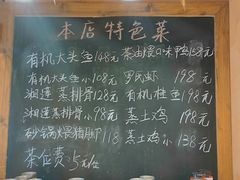 本店特色菜
有机大头鱼148元 茶油煨口味鸭158元
有机大头小108元 罗氏虾 198元
湘莲蒸排骨128元 有机桂鱼198元
湘莲蒸排骨小98元 蒸土鸡 198元
砂锅煨猪脚118 蒸土鸡小138元
茶位费:5元/位